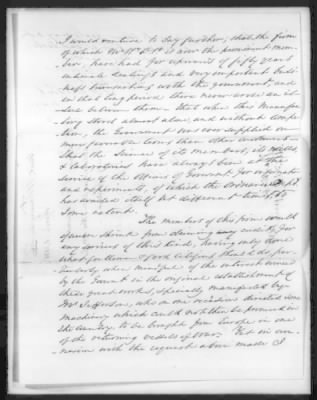 I would venture to say further, that the firm
of which Mr. is now the prominent mem-
ber, have had for upwards of fifty years
intimate dealings and very important busi-
ness transactions with the government, and
in that long period there never arose an is-
sue between them. That when this Manufac-
tory stood almost alone, and without compe-
tition, the Government was ever supplied on
more favorable terms than other customers.
That the Services of its members, its mills,
& laboratories have always been at the
service of the Officers of Government for investigation
and experiments, of which the Ordnance Dept.
has availed itself at different times to
some extent.
The members of this firm would
of course shrink from claiming any credit for
any services of this kind, having only done
what gentlemen & good citizens should do, par-
ticularly when mindful of the interest evinced
by the Government in the original establishment of
these great works, specially manifested by
Mr. Jefferson, who on one occasion directed some
machinery which could not then be procured in
the country, to be brought from Europe in one
of the returning vessels of war. Yet in con-
nexion with the request above made I